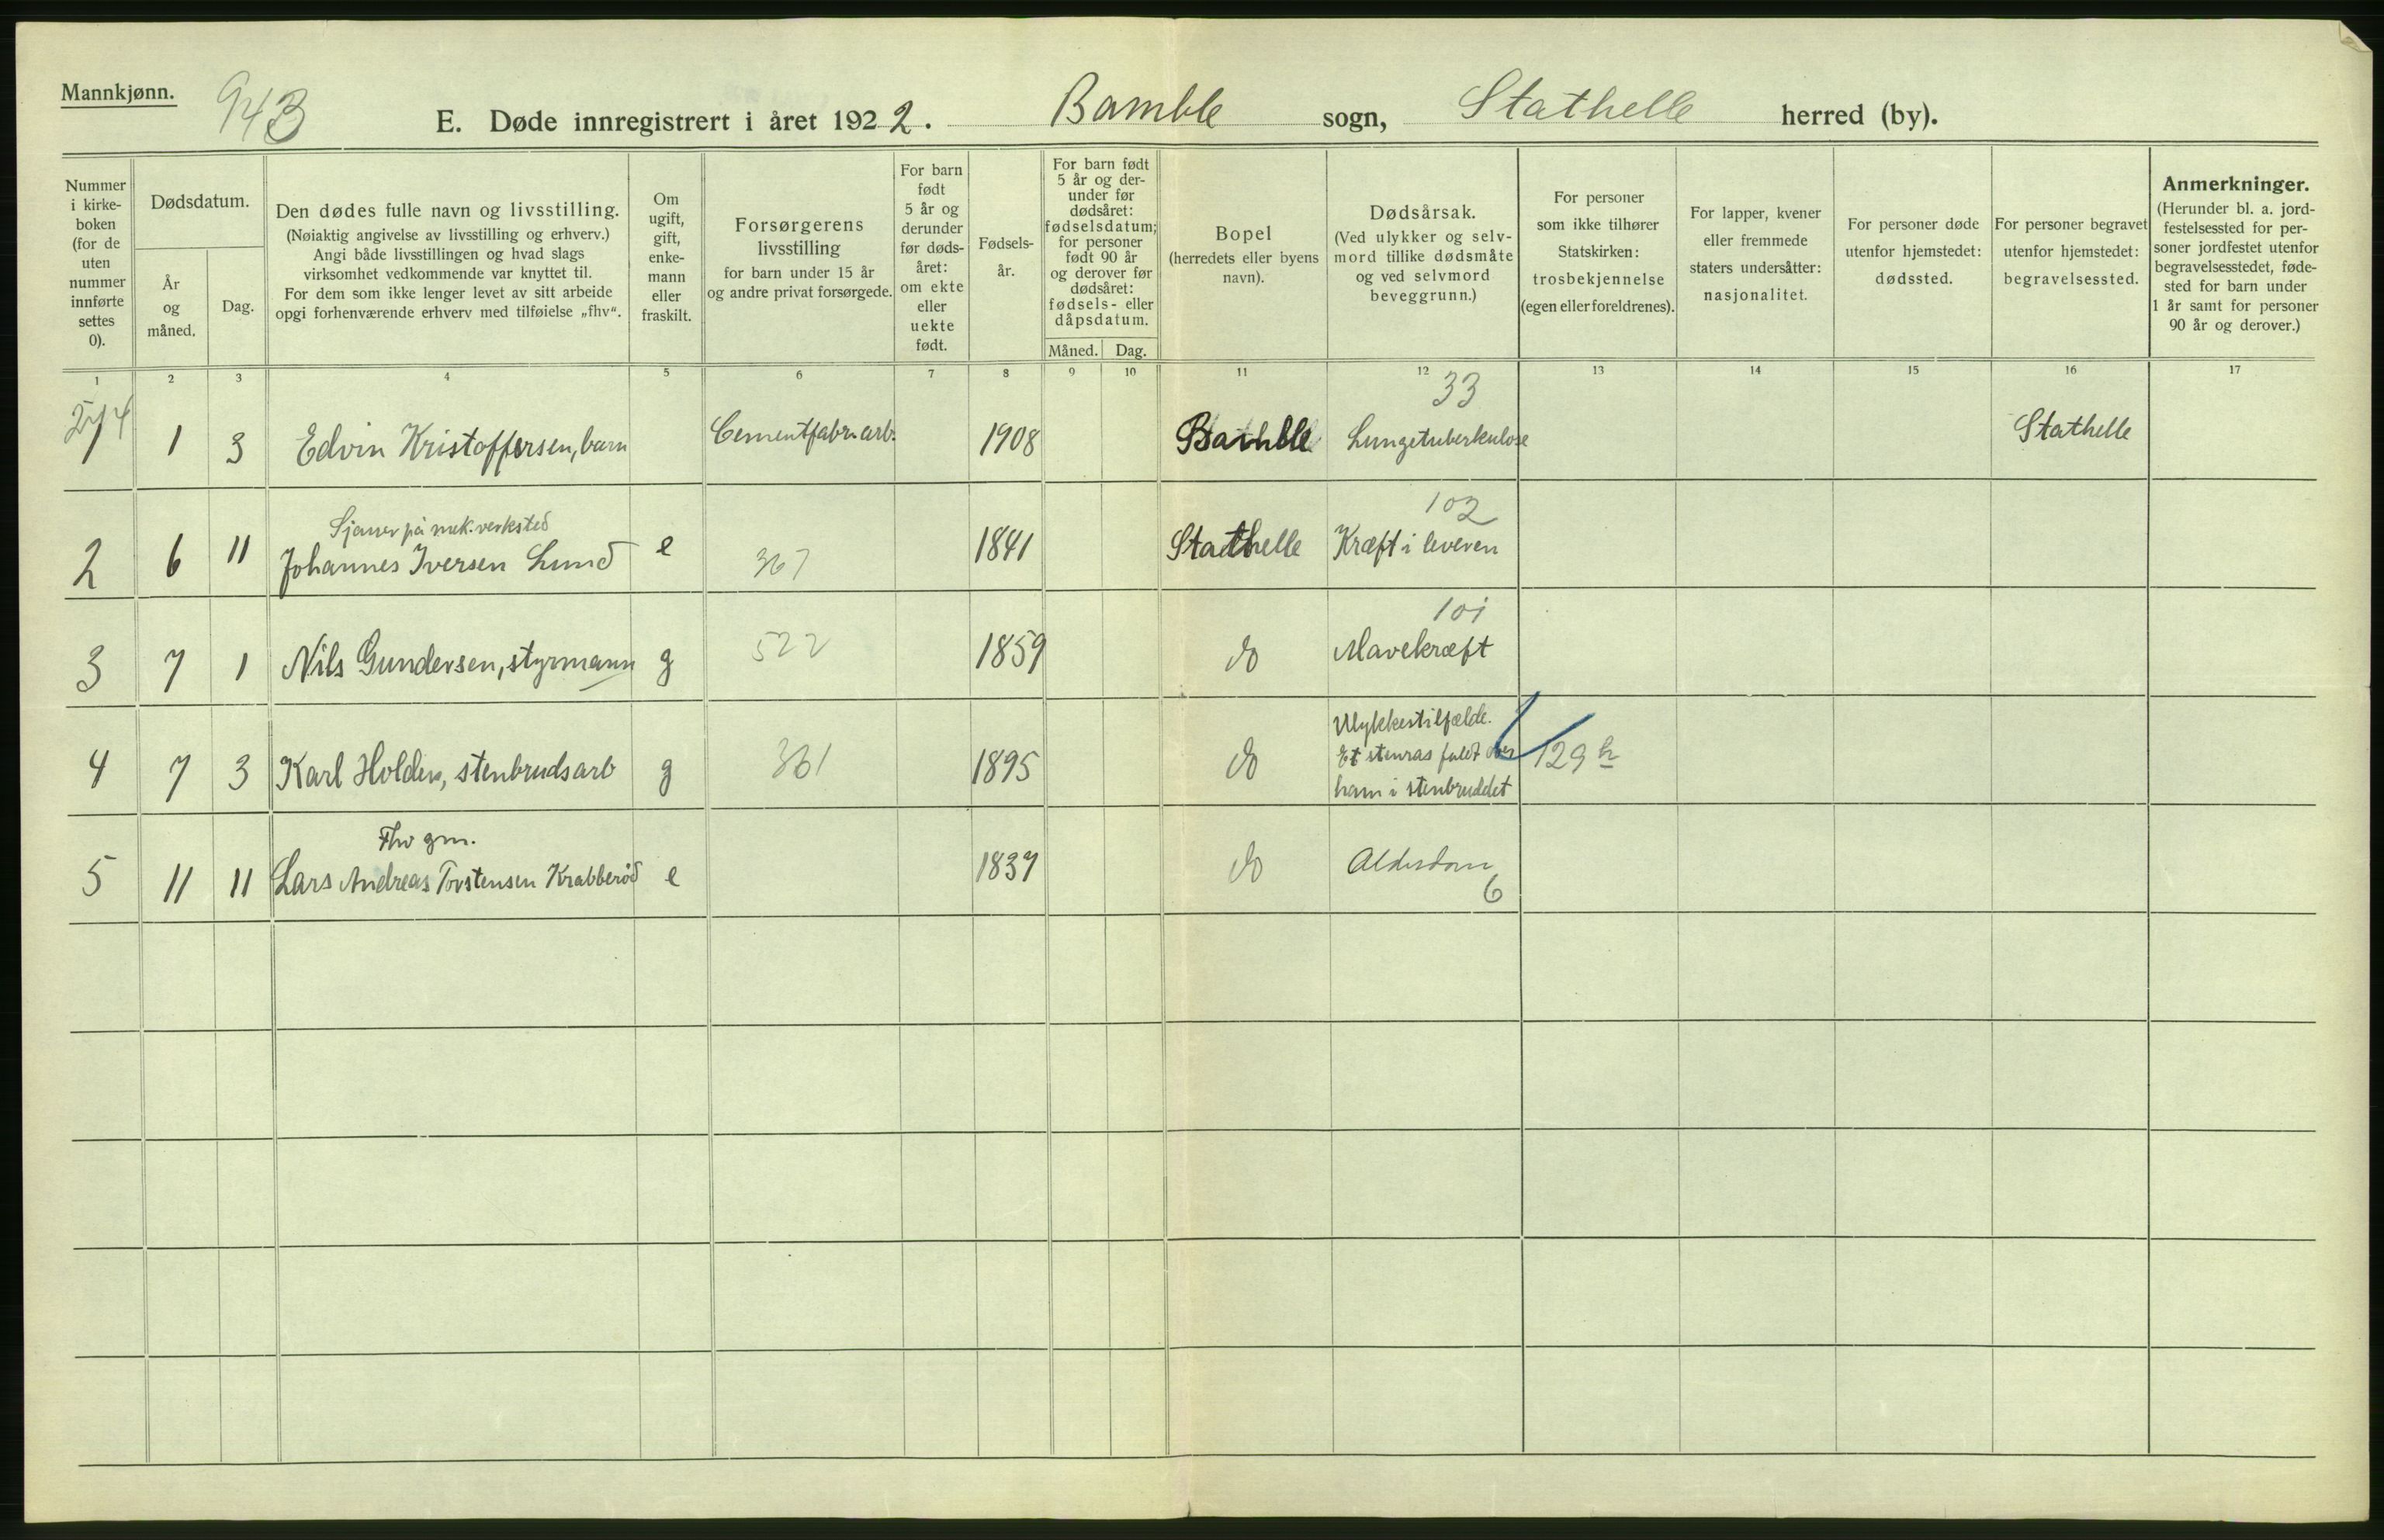 Mannkjønn.
943
E. Døde innregistrert i året 1922. Bamble sogn, Stathelle herred (by).
Nummer i kirke-boken (for de uten nummer innførte settes 0).
Dødsdatum.
År og måned.
Dag.
Den dødes fulle navn og livsstilling.
(Nøiaktig angivelse av livsstilling og erhverv.)
Angi både livsstillingen og hvad slags
virksomhet vedkommende var knyttet til.
For dem som ikke lenger levet av sitt arbeide
opgi forhenværende erhverv med tilføielse „fhv“.
Om ugift, gift, enke-mann eller fraskilt.
Forsørgerens
livsstilling
for barn under 15 år
og andre privat forsørgede.
For barn født 5 år og derunder før døds-året: om ekte eller uekte født.
Fødsels-år.
For barn født 5 år og der-under før dødsåret: fødselsdatum; for personer født 90 år og derover før dødsåret: fødsels- eller dåpsdatum.
Måned. Dag.
Bopel
(herredets eller byens
navn).
Dødsårsak.
(Ved ulykker og selv-
mord tillike dødsmåte
og ved selvmord
beveggrunn.)
For personer
som ikke tilhører
Statskirken:
trosbekjennelse
(egen eller foreldrenes).
For lapper, kvener
eller fremmede
staters undersåtter:
nasjonalitet.
For personer døde
utenfor hjemstedet:
dødssted.
For personer begravet
utenfor hjemstedet:
begravelsessted.
Anmerkninger.
(Herunder bl. a. jord-
festelsessted for per-
soner jordfestet utenfor
begravelsesstedet, føde-
sted for barn under
1 år samt for personer
90 år og derover.)
1 2 3 4 5 6 7 8 9 10 11 12 13 14 15 16 17
33
1 1 3 Edvin Kristoffersen, barn Cementfabr.arb. 1908 Bamble Lungetuberkulose Stathelle
Sjauer på mek.verksted 102
2 6 11 Johannes Iversen Lund e 367 1841 Stathelle Kræft i leveren
101
3 7 1 Nils Gundersen, styrmann g 522 1859 do Mavekræft
Ulykkestilfælde.
4 7 3 Karl Holden, stenbrudsarb g 361 1895 do Et stenras faldt over 129 h
ham i stenbruddet
Fhv gm.
5 11 11 Lars Andreas Torstensen Krabberød e 1837 do Alderdom
6